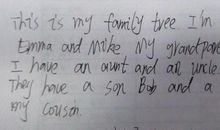 This is my family tree. I'm
Emma and Mike. My grandpare
I have an aunt and an uncle.
They have a son Bob and a
my cousin.